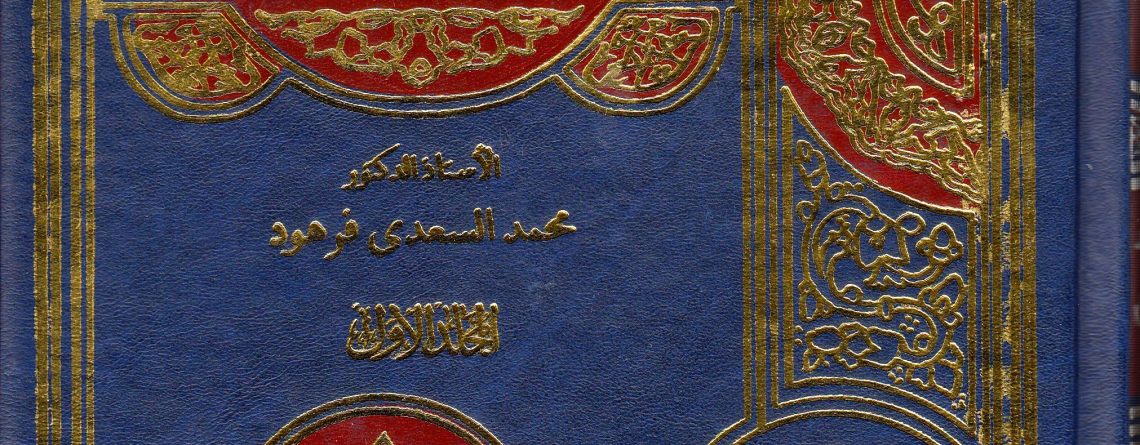 الأستاذ الدكتور
محمد السعدى فرهود
المجلد الأول